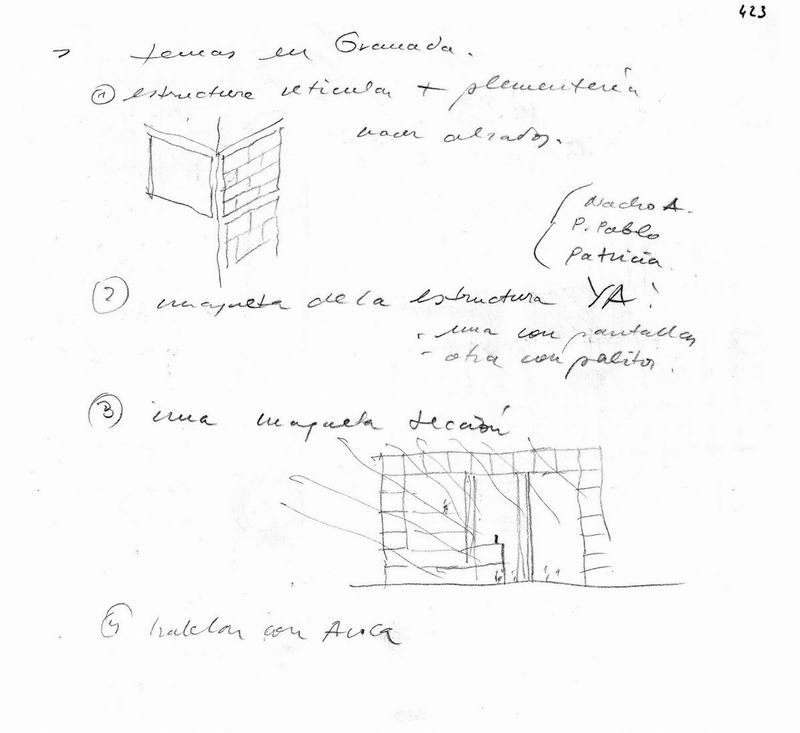 423
→ temas en Granada.
① estructura reticular + plementería
hacer alzados.
Nacho A.
P. Pablo
Patricia
② maqueta de la estructura YA!
- una con pantallas
- otra con palitos.
③ una maqueta sección
④ hablar con